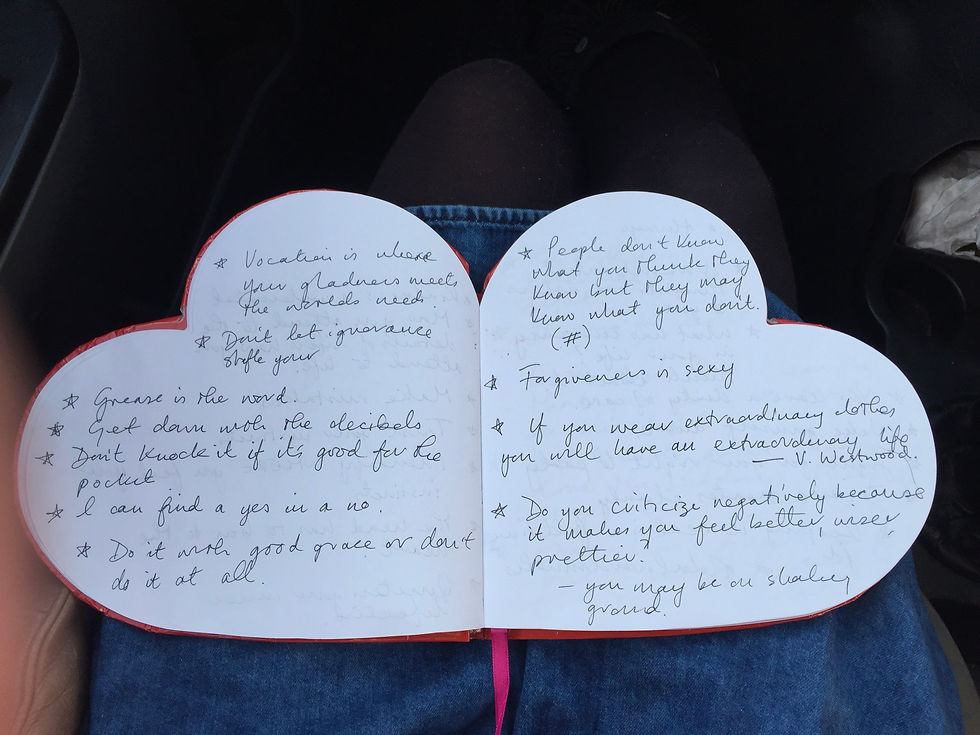 ☆ Vocation is where
your gladness meets
the worlds needs.
☆ Don't let ignorance
stifle your
☆ Grease is the word.
☆ Get down with the decibels
☆ Don't knock it if it's good for the
pocket
☆ I can find a yes in a no.
☆ Do it with good grace or don't
do it at all.
☆ People don't know
what you think they
know but they may
know what you don't.
(#)
☆ Forgiveness is sexy
☆ If you wear extraordinary clothes
you will have an extraordinary life
— V. Westwood.
☆ Do you criticize negatively because
it makes you feel better, wiser,
prettier?
– you may be on shakey
ground.